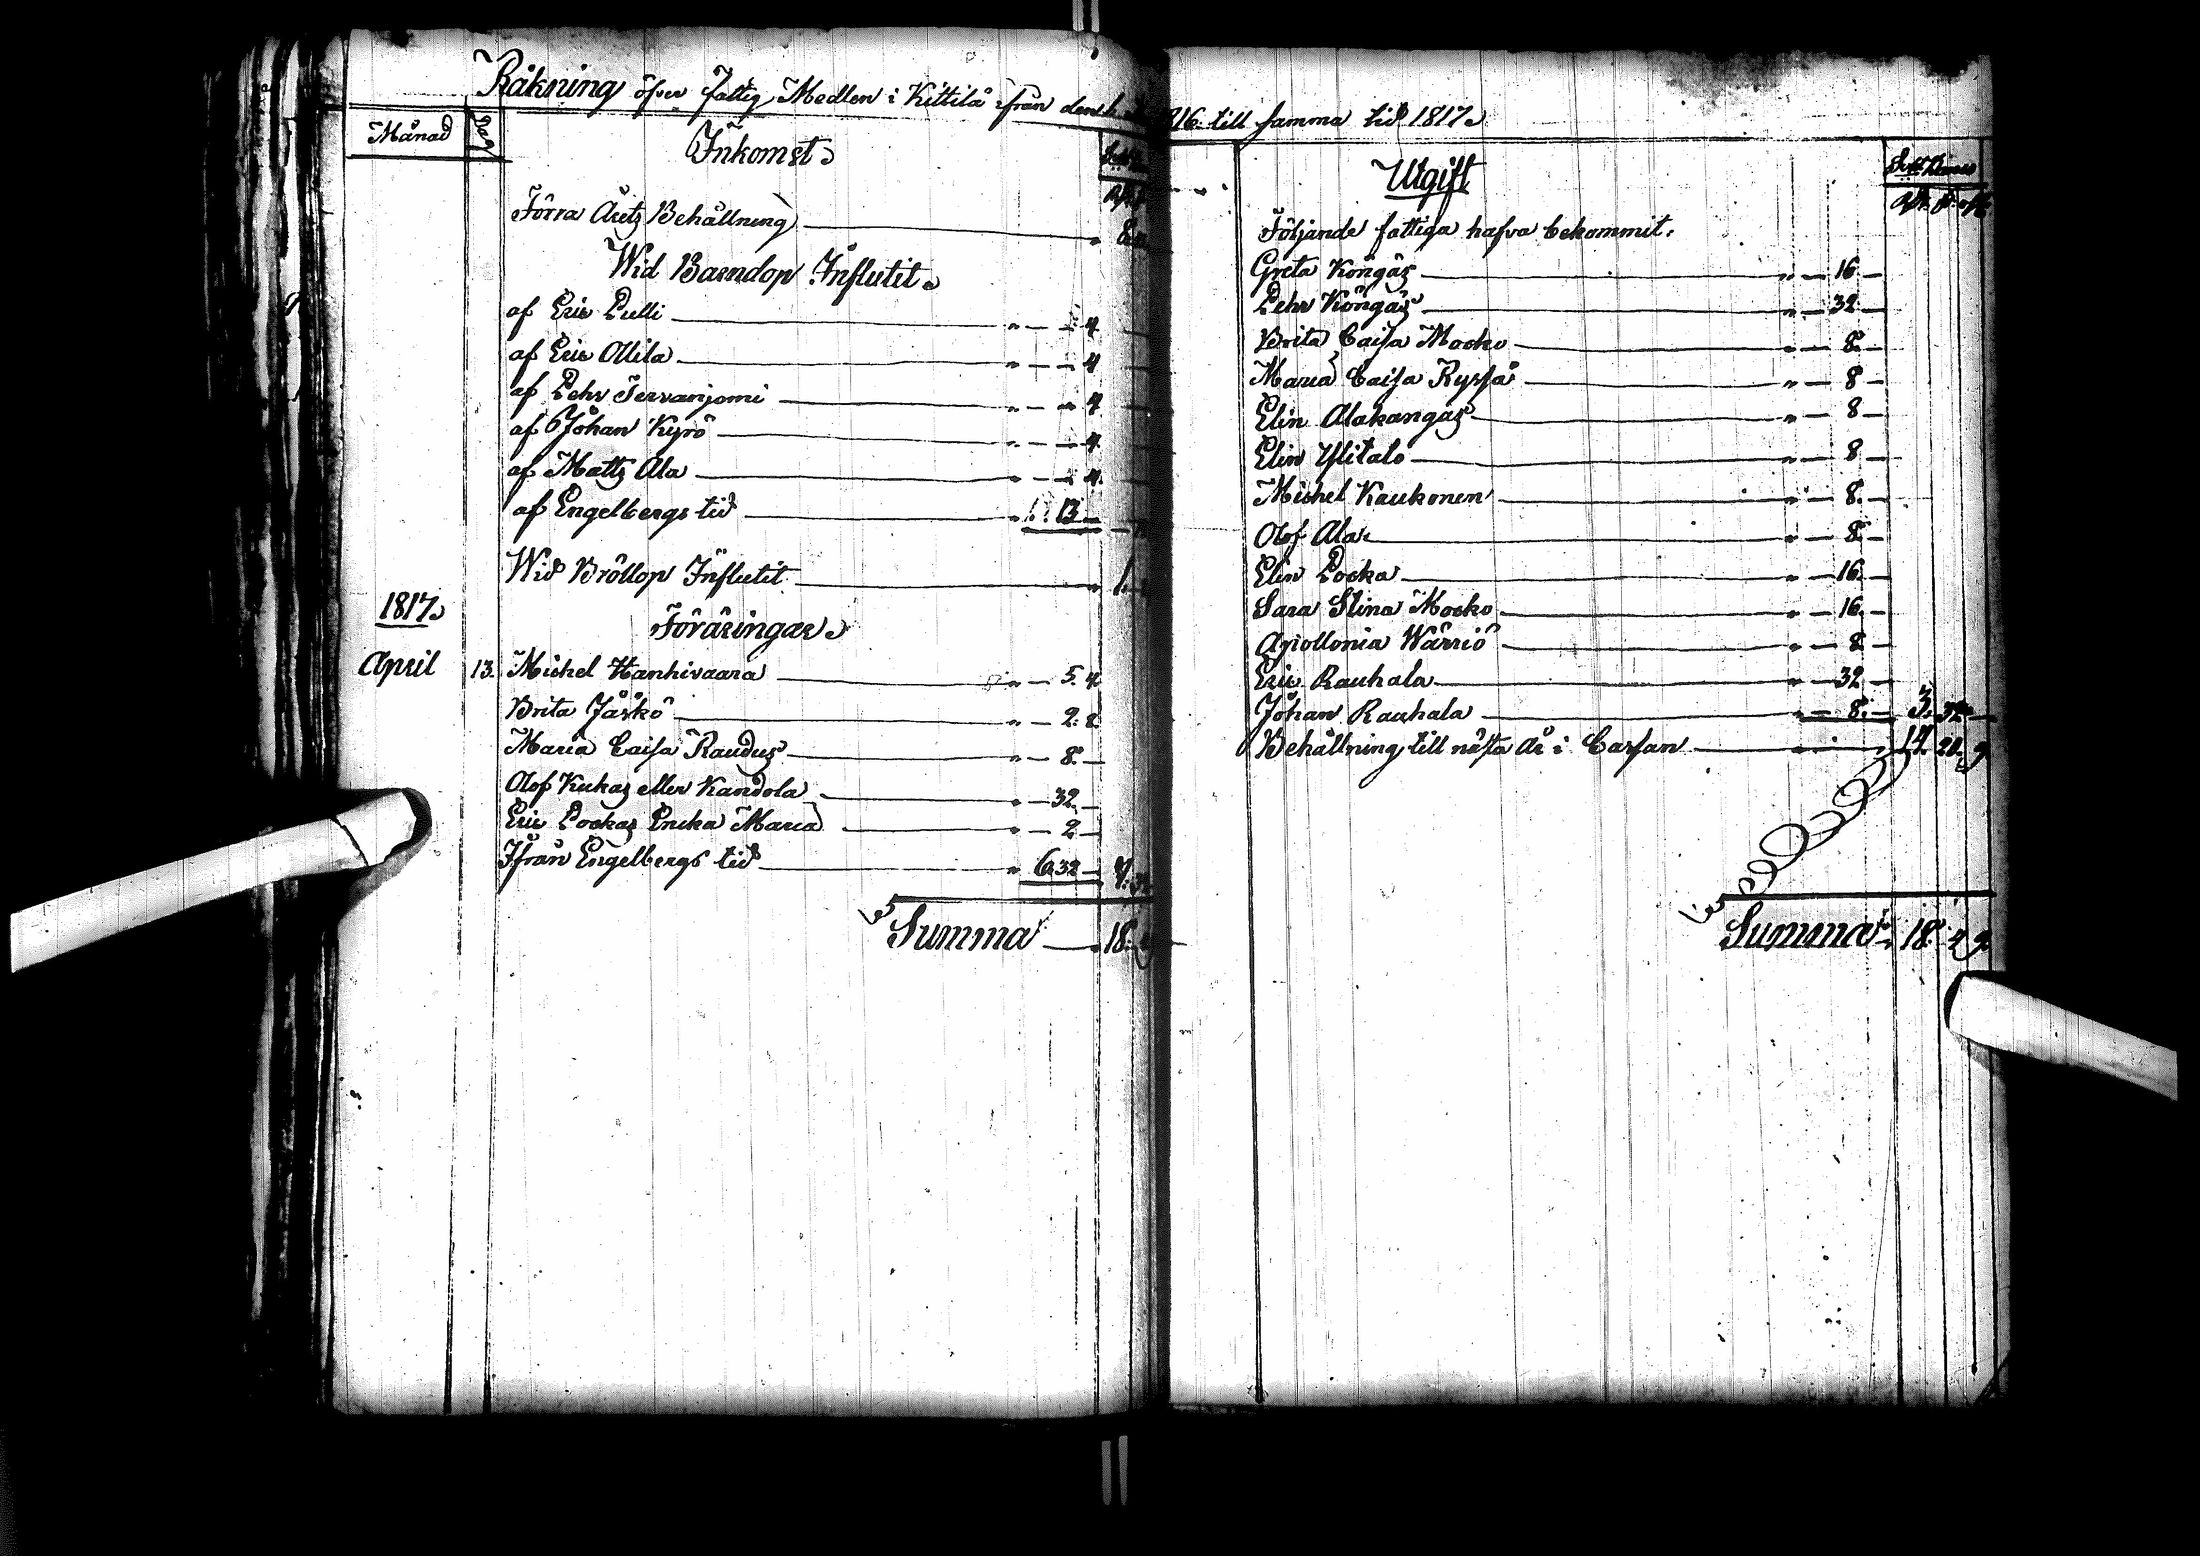 Räkning öfver Fattig Medlen i Kittilä ifrån den 1.
Månad Dag
Inkomst.
Förra Åretz Behållning
Wid Barndop Influtit.
af Eric Pulli " — — 4
af Eric Ollila " — — 4
af Pehr Tervanjomi " — — 4
af Johan Kyrö " — — 4
af Matts Ala " — — 4
af Engelbergs tid 13 —
Wid Bröllop Influtit 1.
1817.
Föräringar.
April 13. Michel Hanhivaara " — 5. 4
Brita Jääskö " — 2. 8
Maria Caisa Raudus " — 8. —
Olof Kukas eller Kandola " — 32 —
Eric Pockas Encka Maria " — 2 —
Ifrån Engelbergs tid " 6 32 —
Summa 18.
16. till samma tid 1817.
Utgift
Följande fattiga hafva bekommit.
Greta Köngäs " — 16 —
Pehr Köngäs " — 32 —
Brita Caisa Mocko " — 8. —
Maria Caisa Ryssä " — 8 —
Elin Alakangas " — 8 —
Elin Ylitalo " — 8 —
Michel Kaukonen " — 8. —
Olof Ala " — 8. —
Elin Pocka " — 16. —
Sara Stina Mocko " — 16. —
Apollonia Wärriö " — 8 —
Eric Rauhala " — 32 —
Johan Rauhala " — 8. — 3. 32 —
Behållning till nästa År i Cassan 14. 20. 9
Summa 18. 4 9